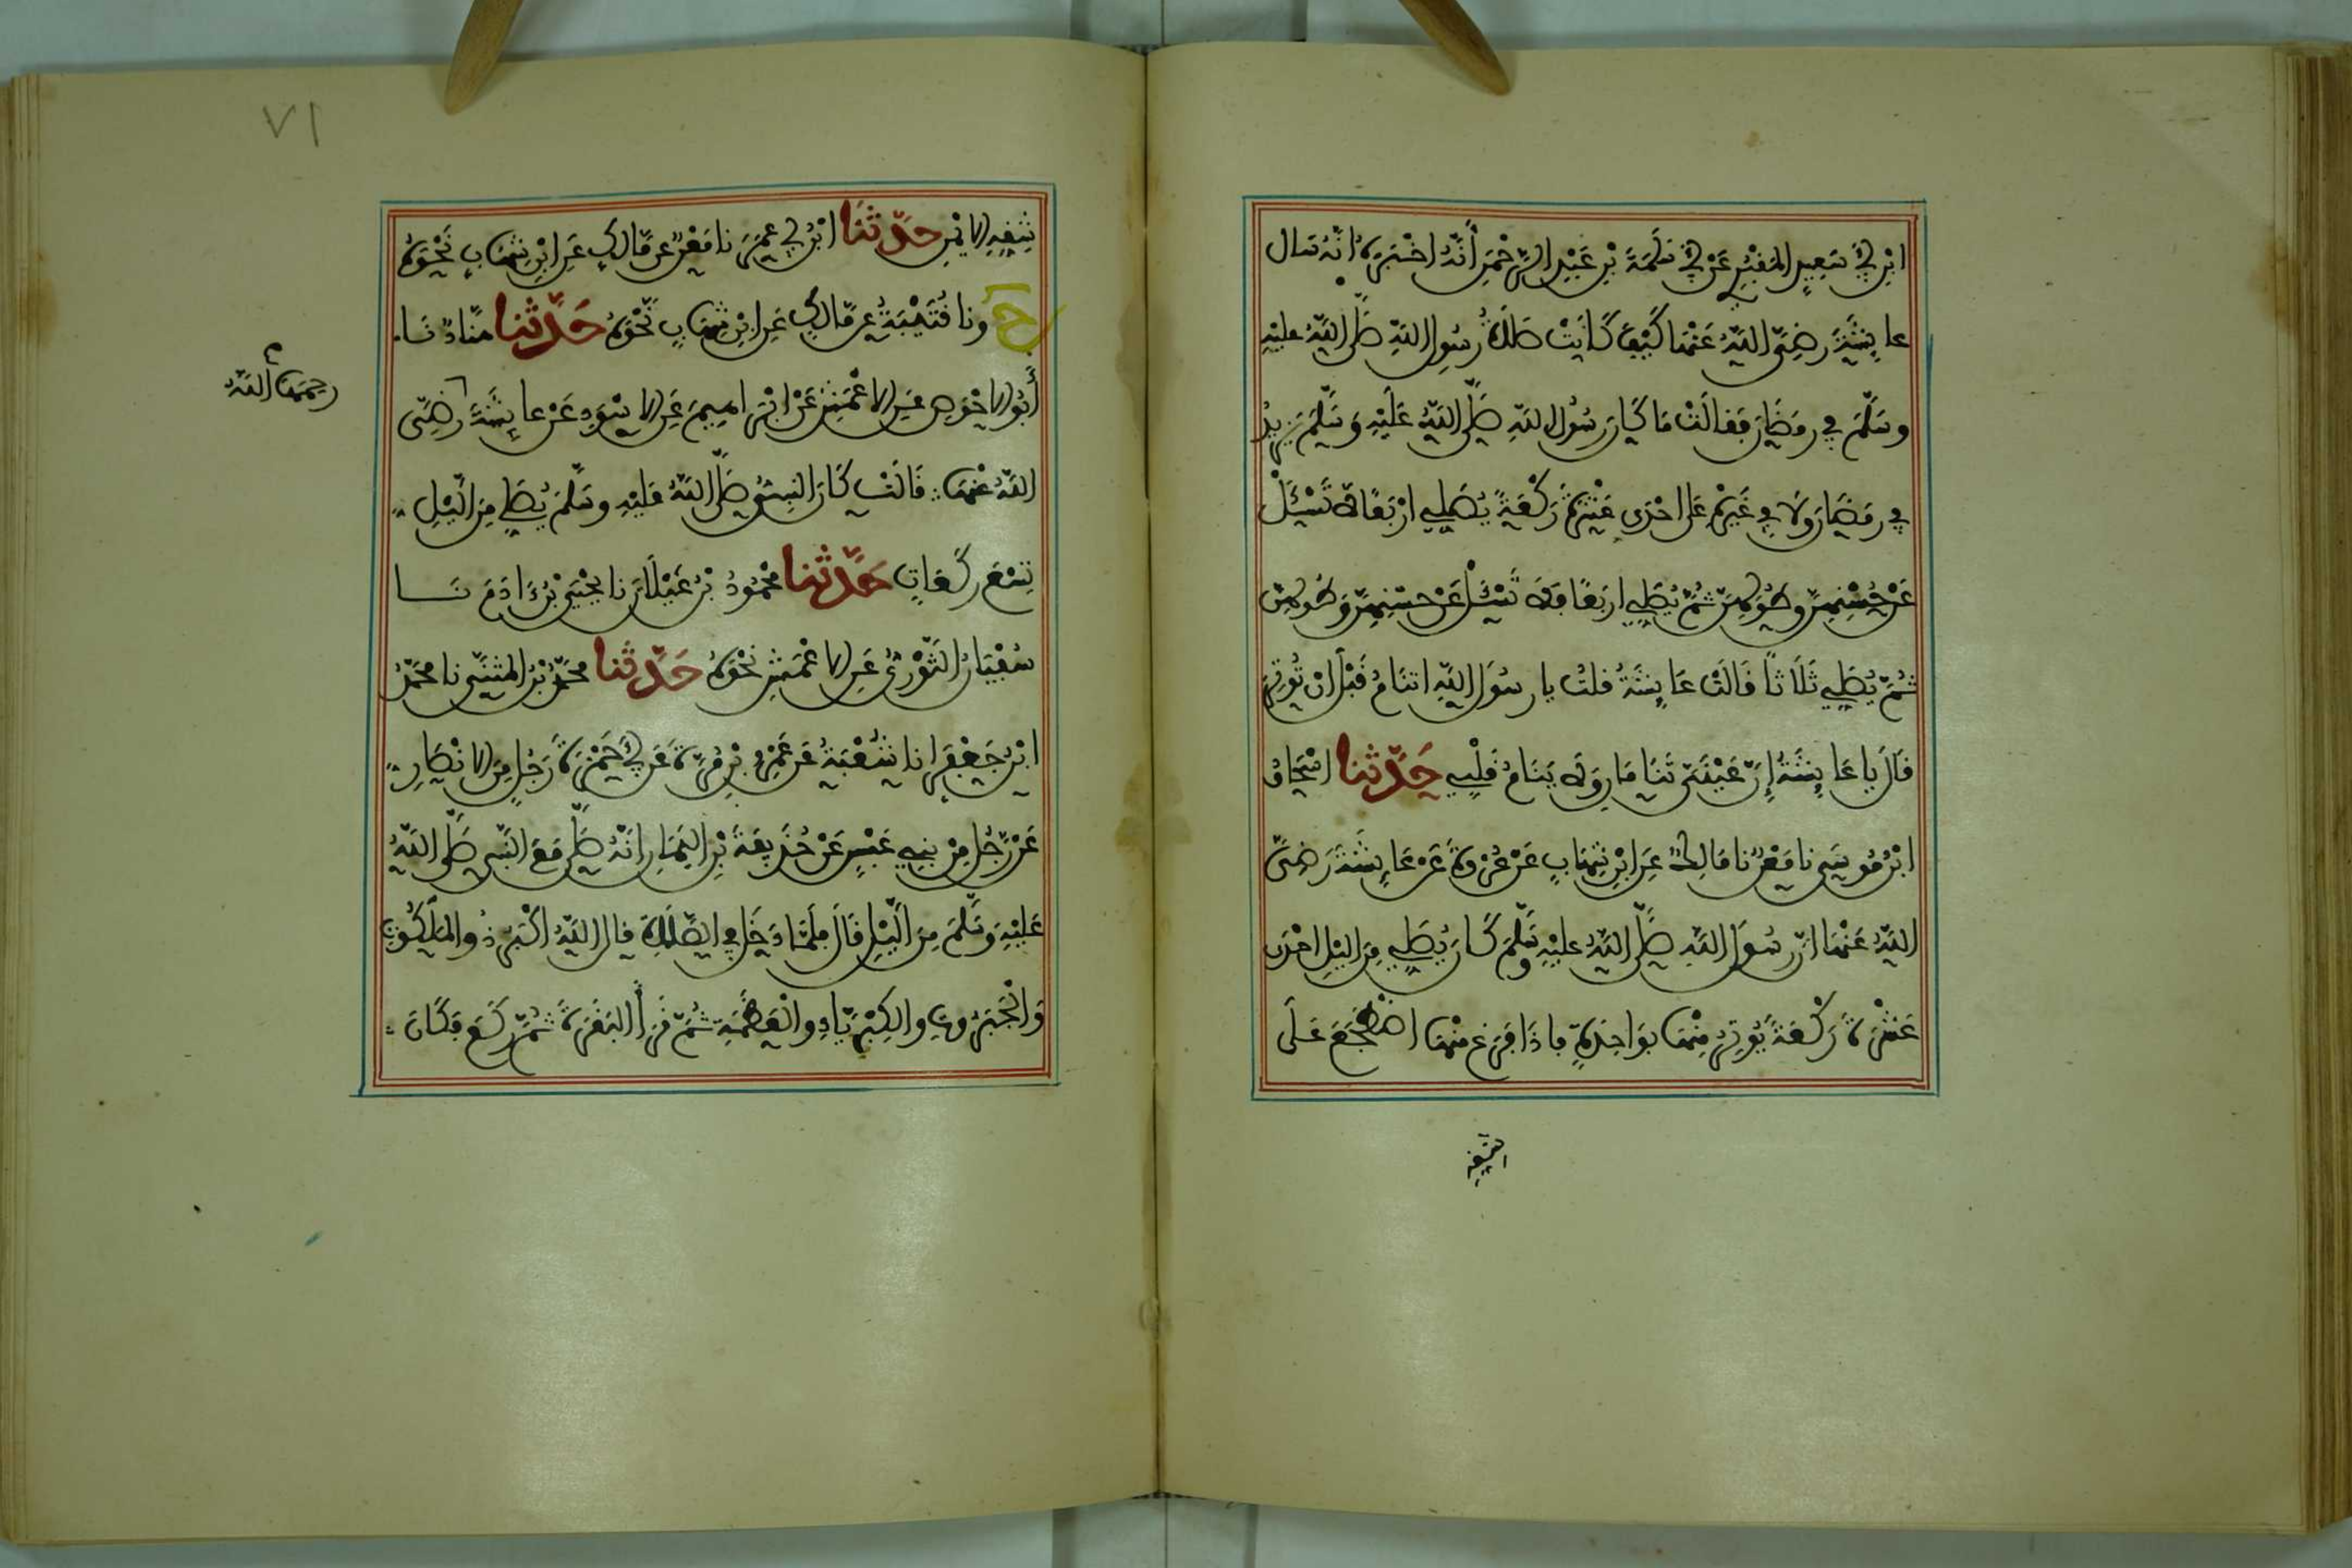 ابْنِ أَبِي سَعِيدٍ المَقْبُرِيِّ عَنْ أَبِي سَلَمَةَ بْنِ عَبْدِ الرَّحْمَنِ أَنَّهُ اخْبَرَهُ انَّهُ سَال
عائِشَةَ رَضِيَ اللَّهُ عَنْهَا كَيْفَ كَانَتْ صَلَاةُ رَسُولِ اللَّهِ صَلَّى اللَّهُ عليْهِ
وسَلَّمَ فِي رمَضَانَ فَقَالَتْ مَا كَانَ رسُولُ اللهِ صَلَّى اللَّهُ عَلَيْهِ وَسَلَّمَ يَزِيدُ
فِي رمَضَانَ وَلَا فِي غَيْرِهِ عَلَى احْدَى عَشْرَةَ رَكْعَةً يُصَلِّي ارْبَعًا لَا تَسْئَلْ
عَنْ حُسْنِهِنَّ وطُولِهِنَّ ثُمَّ يُصَلِّي ارْبَعًا فَلَا تَسْئَلْ عَنْ حسْنِهِنَّ وَطُولِهِنَّ
ثُمَّ يُصَلِّي ثَلَاثًا قَالَتْ عَائِشَةُ قلتُ يا رسُولَ اللَّهِ اتنَامُ قَبْلَ انْ تُوتِرَ
قَالَ يا عَائِشَةُ إِنَّ عَيْنَيَّ تَنَامَانِ وَلَا يَنَامُ قَلْبِي حَدَّثنا اسْحَاقُ
ابْنُ مُوسَى نا مَعْنٌ نا مَالِكٌ عَنِ ابْنِ شِهَابٍ عَنْ عُرْوَةَ عَنْ عَائِشَةَ رَضِيَ
اللَّهُ عَنْهَا انَّ رسُولَ اللَّهِ صَلَّى اللَّهُ عليْهِ وسَلَّمَ كَانَ يُصَلِّي مِنَ اللَّيْلِ احْدَى
عَشْرَةَ رَكْعَةً يُوتِرُ مِنْهَا بوَاحِدَةٍ فاذَا فَرَغَ مِنْهَا اضْطَجَعَ عَلَى
شقه
٧١
شِقِّهِ الايْمَنِ حَدَّثَنَا ابْنُ أَبِي عُمَرَ نا مَعْنٌ عن مَّالِكٍ عَنِ ابْنِ شِهَابٍ نَحْوَهُ
ح ونا قُتَيْبَةُ عن مَّالِكٍ عَنِ ابْنِ شِهَابٍ نَّحْوَهُ حَدَّثنا هنَّادٌ نَا
أَبُو الاحْوَصِ عَنِ الاعْمَشِ عَنْ ابْرَاهِيمَ عَنِ الاسْوَدِ عَنْ عائِشَةَ رَضِيَ
رحمها الله
اللهُ عَنْهَا قَالَتْ كَانَ النبِيُّ صَلَّى اللهُ عَلَيْهِ وسَلَّمَ يُصَلِّي مِنَ اللَّيْلِ
تِسْعَ رَكَعَاتٍ حَدَّثنا مَحْمُودُ بْنُ غَيْلَانَ نا يَحْيَى بْنُ ءادَمَ نَا
سُفْيَانُ الثَّوْرِيُّ عَنِ الاعْمَشِ نَحْوَهُ حَدَّثَنا محَمَّدُ بْنُ المُثَنَّى نا محَمَّدُ
ابْنُ جَعْفَرٍ انا شُعْبَةُ عَن عَمْرِو بْنِ مُرَّةَ عَن أَبِي حَمْزَةَ رَجُلٍ مِنَ الانْصَارِ
عَنْ رَّجُلٍ مِنْ بنِي عَبْسٍ عَنْ حُذَيْفَةَ بْنِ اليَمَانِ انَّهُ صَلَّى مَعَ النَّبِي صَلَّى اللهُ
عَلَيْهِ وَسَلَّمَ مِنَ اللَّيْلِ قَالَ فلَمَّا دَخَلَ فِي الصَّلَاةِ قال اللَّهُ اكْبَرُ ذُو المَلَكُوتِ
وَالْجَبَرُوتِ والكِبْرِيَاءِ والْعَظَمَةِ ثُمَّ قَرَأَ البَقَرَةَ ثُمَّ رَكَعَ فكَانَ